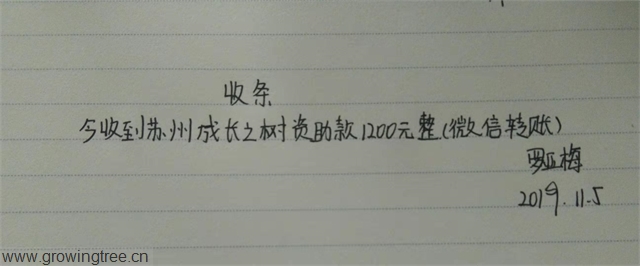 收条
今收到苏州成长之树资助款1200元整(微信转账)
罗亚梅
2019.11.5
www.growingtree.cn